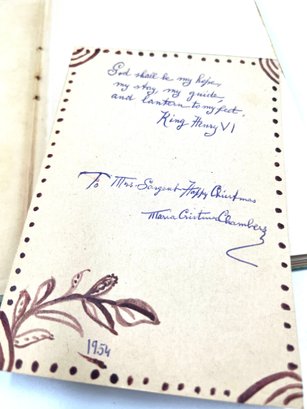 God shall be my hope,
my stay, my guide,
and lantern to my feet.
King Henry VI
To Mrs. Sargent Happy Christmas
Maria Cristina Chambers
1954